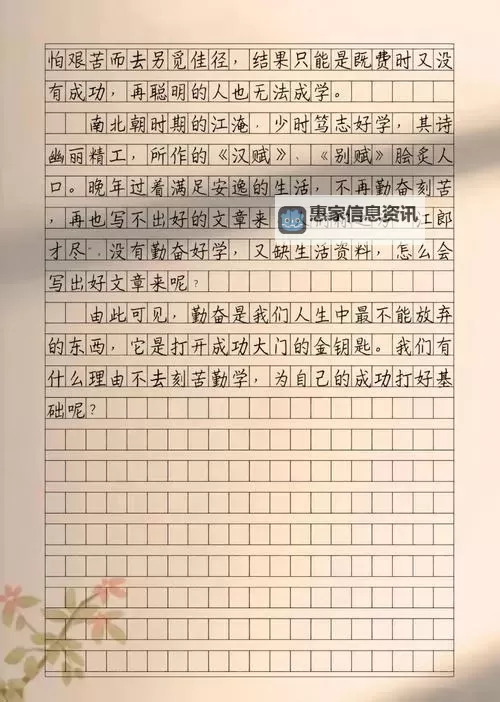 怕艰苦而去另觅佳径，结果只能是既费时又没
有成功，再聪明的人也无法成学。
南北朝时期的江淹，少时笃志好学，其诗
幽丽精工，所作的《汉赋》、《别赋》脍炙人
口。晚年过着满足安逸的生活，不再勤奋刻苦
，再也写不出好的文章来
惠家信息资讯
江郎
才尽，没有勤奋好学，又缺生活资料，怎么会
写出好文章来呢？
由此可见，勤奋是我们人生中最不能放弃
的东西，它是打开成功大门的金钥匙。我们有
什么理由不去刻苦勤学，为自己的成功打好基
础呢？